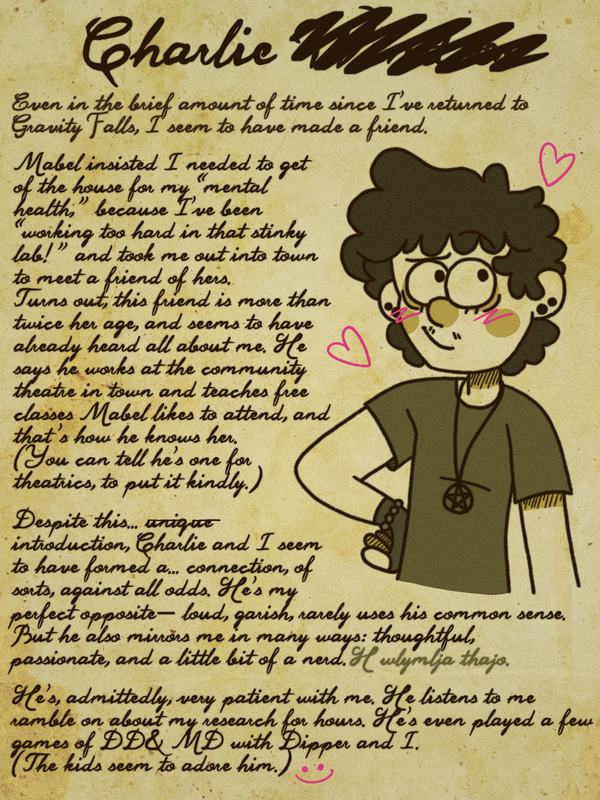 Charlie
Even in the brief amount of time since I've returned to
Gravity Falls, I seem to have made a friend.
Mabel insisted I needed to get
of the house for my "mental
health," because I've been
"working too hard in that stinky
lab!" and took me out into town
to meet a friend of hers.
Turns out, this friend is more than
twice her age, and seems to have
already heard all about me. He
says he works at the community
theatre in town and teaches free
classes Mabel likes to attend, and
that's how he knows her.
(You can tell he's one for
theatrics, to put it kindly.)
Despite this... unique
introduction, Charlie and I seem
to have formed a... connection, of
sorts, against all odds. He's my
perfect opposite— loud, garish, rarely uses his common sense.
But he also mirrors me in many ways: thoughtful,
passionate, and a little bit of a nerd. H wlymlja thajo.
He's, admittedly, very patient with me. He listens to me
ramble on about my research for hours. He's even played a few
games of DD& MD with Dipper and I.
(The kids seem to adore him.)